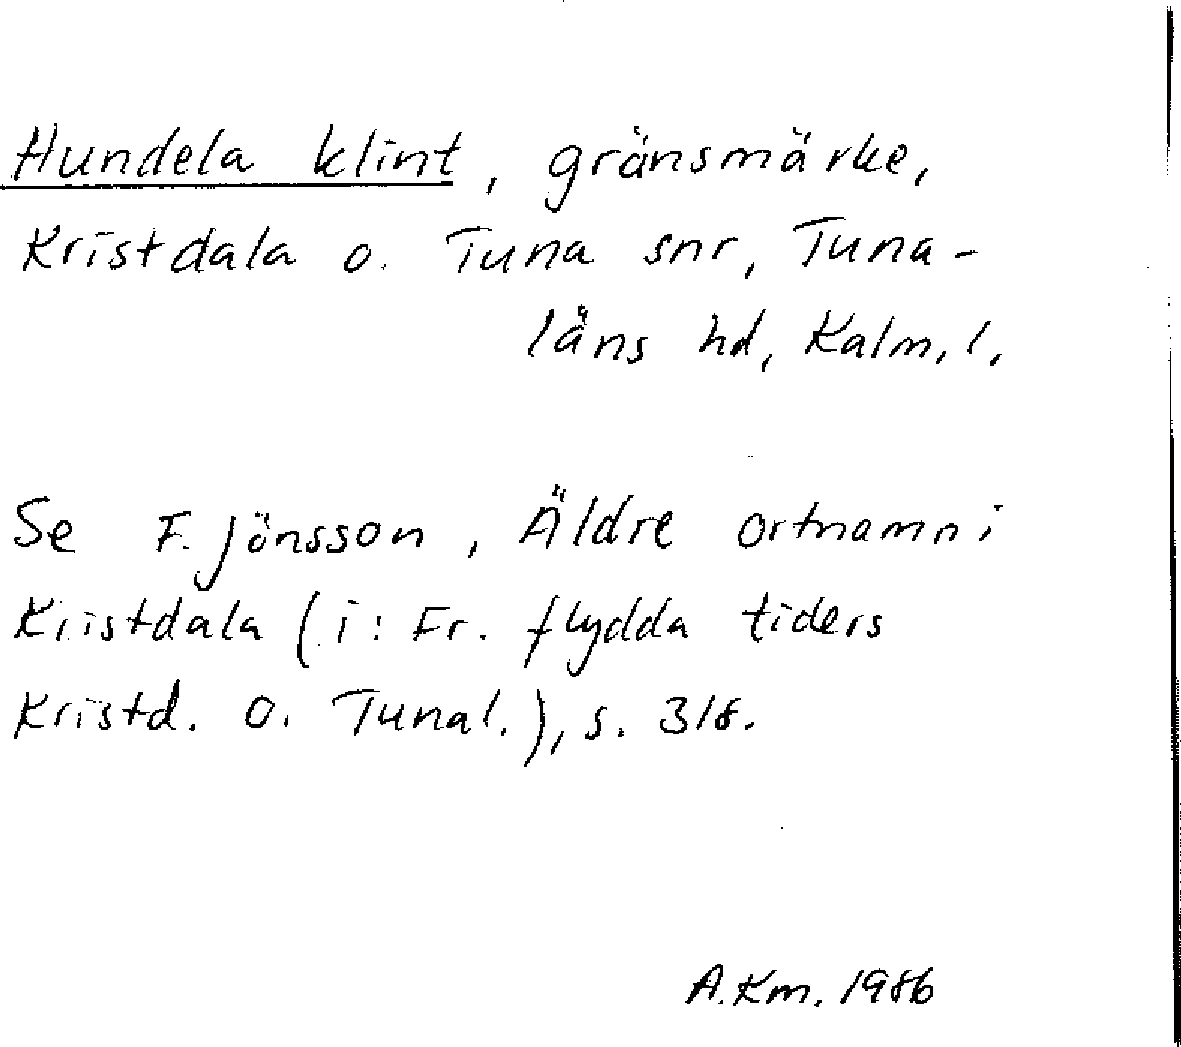 Hundela klint, gränsmärke,
Kristdala o. Tuna snr, Tuna-
läns hd, Kalm. l.
Se F. Jönsson, Äldre ortnamn i
Kristdala (i: Fr. flydda tiders
Kristd. o. Tunal.), s. 318.
A. Km. 1986